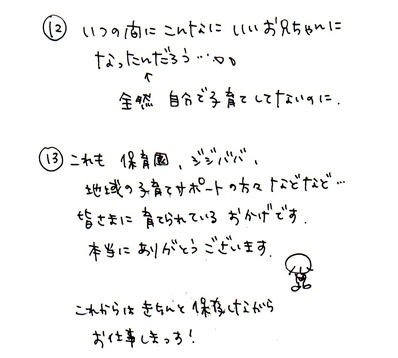 ⑫ いつの間にこんなにいいお兄ちゃんに
なったんだろう…。。
↑
全然 自分で子育てしてないのに.
⑬ これも 保育園、ジジババ、
地域の子育てサポートの方々などなど…
皆さまに 育てられている おかげです.
本当に ありがとうございます.
これからは きちんと 保存しながら
お仕事しまっす!